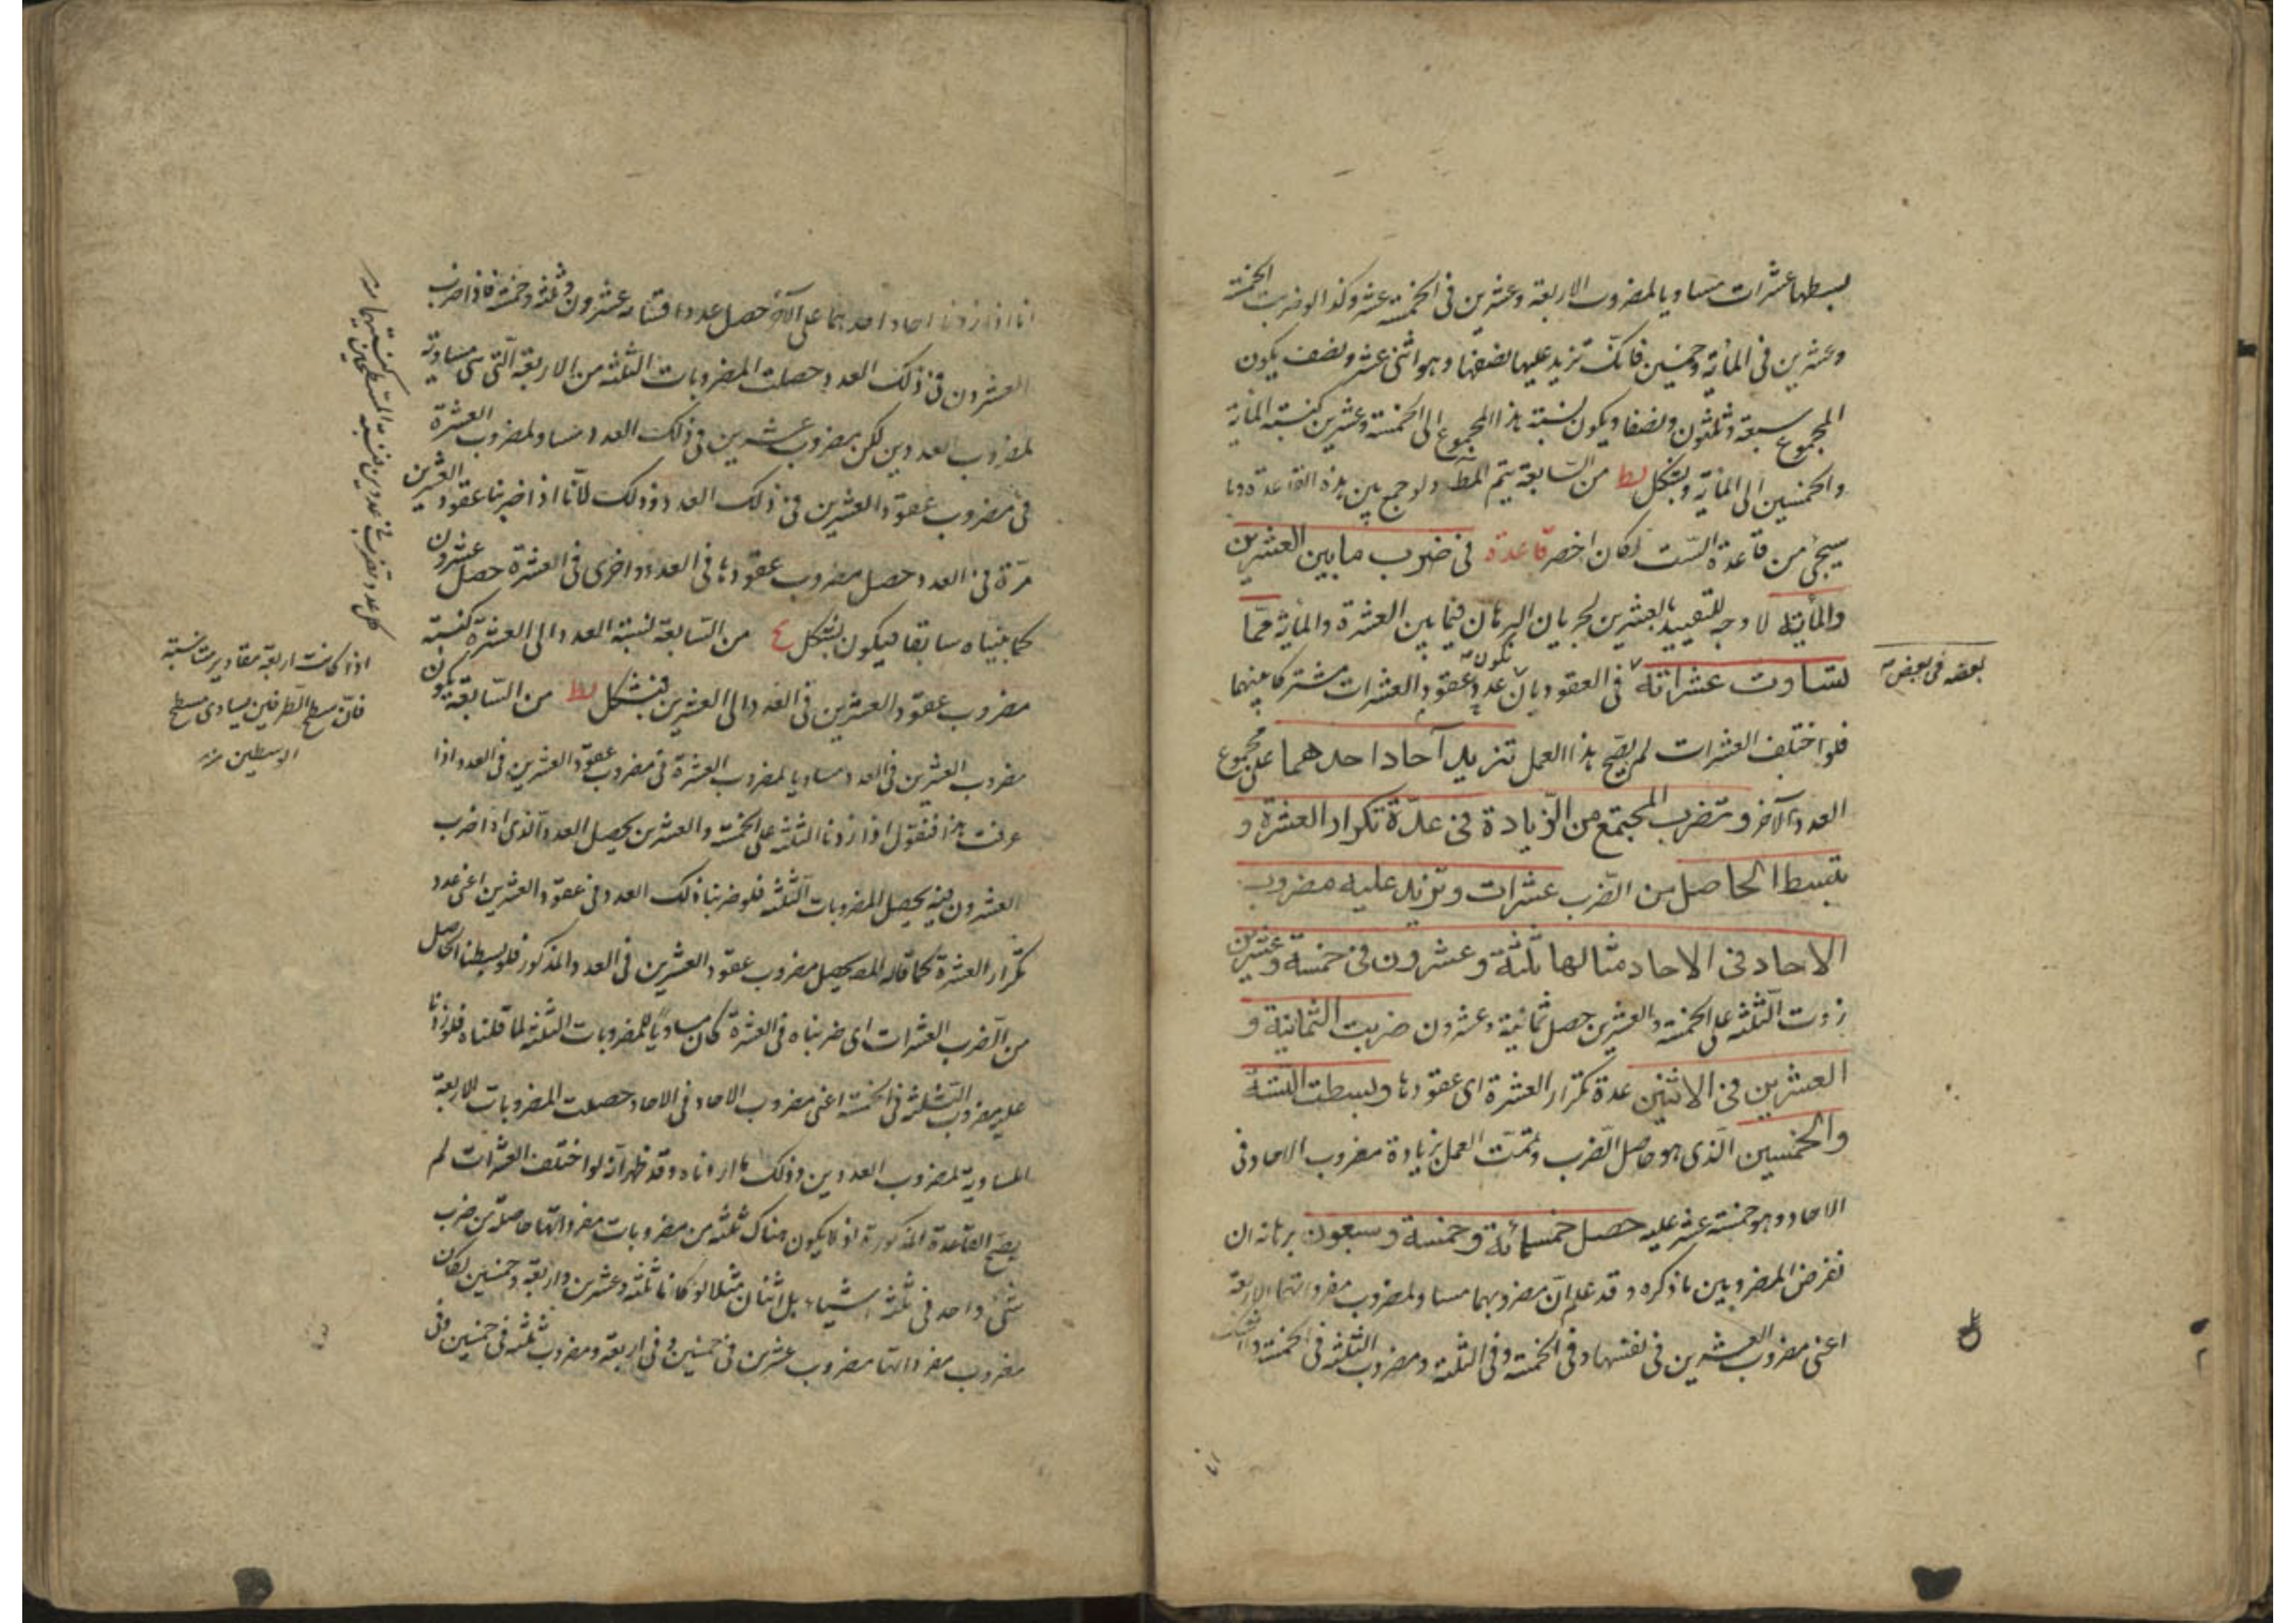 بسطها عشرات مساويا لمضروب الاربعة وعشرين فى الخمسة عشر وكذا لو ضربت الخمسة
وعشرين فى المأية وخمسين فانك تزيد عليها نصفها وهو اثنى عشر ونصف يكون
المجموع سبعة وثلثون ونصفا ويكون نسبة هذا المجموع الى الخمسة وعشرين كنسبة المأية
والخمسين الى المأية وبشكل يط من السابعة يتم المط ولو جمع بين هذه القاعدة وما
سيجئ من قاعدة الست لكان اخصر قاعدة فى ضرب مابين العشرين
والمأية لا وجه للتقييد بالعشرين لجريان البرهان فيما بين العشرة والمأية مما
تساوت عشراته فى العقود بان يكون عدد عقود العشرات مشتركا بينهما
بعضه فى بعض
فلو اختلف العشرات لم يصح هذا العمل تزيد آحاد احدهما على مجموع
العدد الآخر وتضرب المجتمع من الزيادة فى عدة تكرار العشرة و
تبسط الحاصل من الضرب عشرات وتزيد عليه مضروب
الاحاد فى الاحاد مثالها ثلثة وعشرون فى خمسة وعشرين
زدت الثلثة على الخمسة والعشرين حصل ثمانية وعشرون ضربت الثمانية و
العشرين فى الاثنين عدة تكرار العشرة اى عقودها وبسطت الستة
والخمسين الذى هو حاصل الضرب وتممت العمل بزيادة مضروب الاحاد فى
الاحاد وهو خمسة عشر عليه حصل خمسمائة وخمسة وسبعون برهانه ان
نفرض المضروبين ما ذكره وقد علم ان مضروبهما مساو لمضروب مفرداتهما الاربعة
اعنى مضروب العشرين فى نفسها وفى الخمسة وفى الثلثة ومضروب الثلثة فى الخمسة
انا اذا زدنا احاد احدهما على الآخر حصل عدد اقسامه عشرون وثلثة وخمسة فاذا ضرب
العشرون فى ذلك العدد حصلت المضروبات الثلثة من الاربعة التى هى مساوية
لمضروب العددين لكن مضروب عشرين فى ذلك العدد مساو لمضروب العشرة
فى مضروب عقود العشرين فى ذلك العدد وذلك لانا اذا ضربنا عقود العشرين
مرة فى العدد حصل مضروب عقودها فى العدد واخرى فى العشرة حصل عشرون
كما بيناه سابقا فيكون بشكل من السابعة نسبة العدد الى العشرة كنسبة
مضروب عقود العشرين فى العدد الى العشرين فبشكل يط من السابعة يكون
مضروب العشرين فى العدد مساويا لمضروب العشرة فى مضروب عقود العشرين فى العدد اذا
عرفت هذا فنقول اذا زدنا الثلثة على الخمسة والعشرين يحصل العدد الذى اذا ضرب
العشرون فيه يحصل المضروبات الثلثة فلو ضربنا ذلك العدد فى عقود العشرين اعنى عدد
تكرار العشرة كما قاله المص يحصل مضروب عقود العشرين فى العدد المذكور فلو بسطنا الحاصل
من الضرب العشرات اى ضربناه فى العشرة كان مساويا للمضروبات الثلثة لما قلناه فلو زدنا
عليه مضروب الثلثة فى الخمسة اعنى مضروب الاحاد فى الاحاد حصلت المضروبات الاربعة
المساوية لمضروب العددين وذلك ما اردناه وقد ظهر انه لو اختلف العشرات لم
يصح القاعدة المذكورة اذ لا يكون هناك ثلثة من مضروبات مفرداتهما حاصلة من ضرب
شئ واحد فى ثلثة اشياء بل اثنان مثلا لو كانا ثلثة وعشرين واربعة وخمسين لكان
مضروب مفرداتهما مضروب عشرين فى خمسين وفى اربعة ومضروب ثلثة فى خمسين وفى
كل عدد تضرب فى عددين فنسبة المسطحين كنسبتهما
اذا كانت اربعة مقادير متناسبة
فان مسطح الطرفين يساوى مسطح
الوسطين